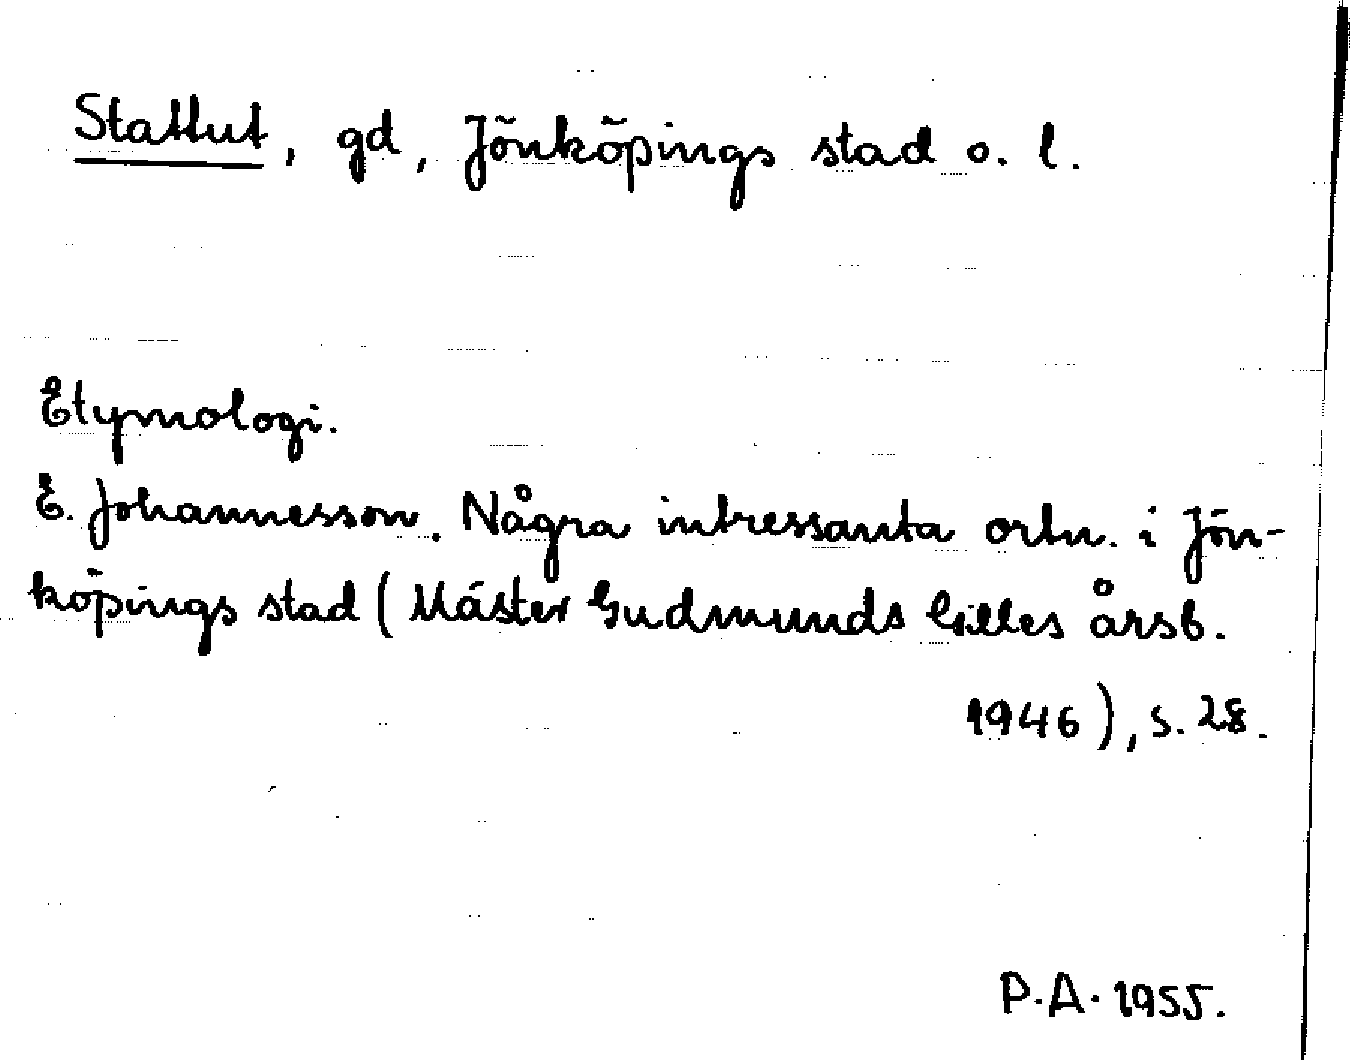 Stattut, gd, Jönköpings stad o. l.
Etymologi.
E. Johannesson. Några intressanta ortn. i Jön-
köpings stad (Mäster Gudmunds Gilles årsb.
1946), s. 28.
P.A. 1955.